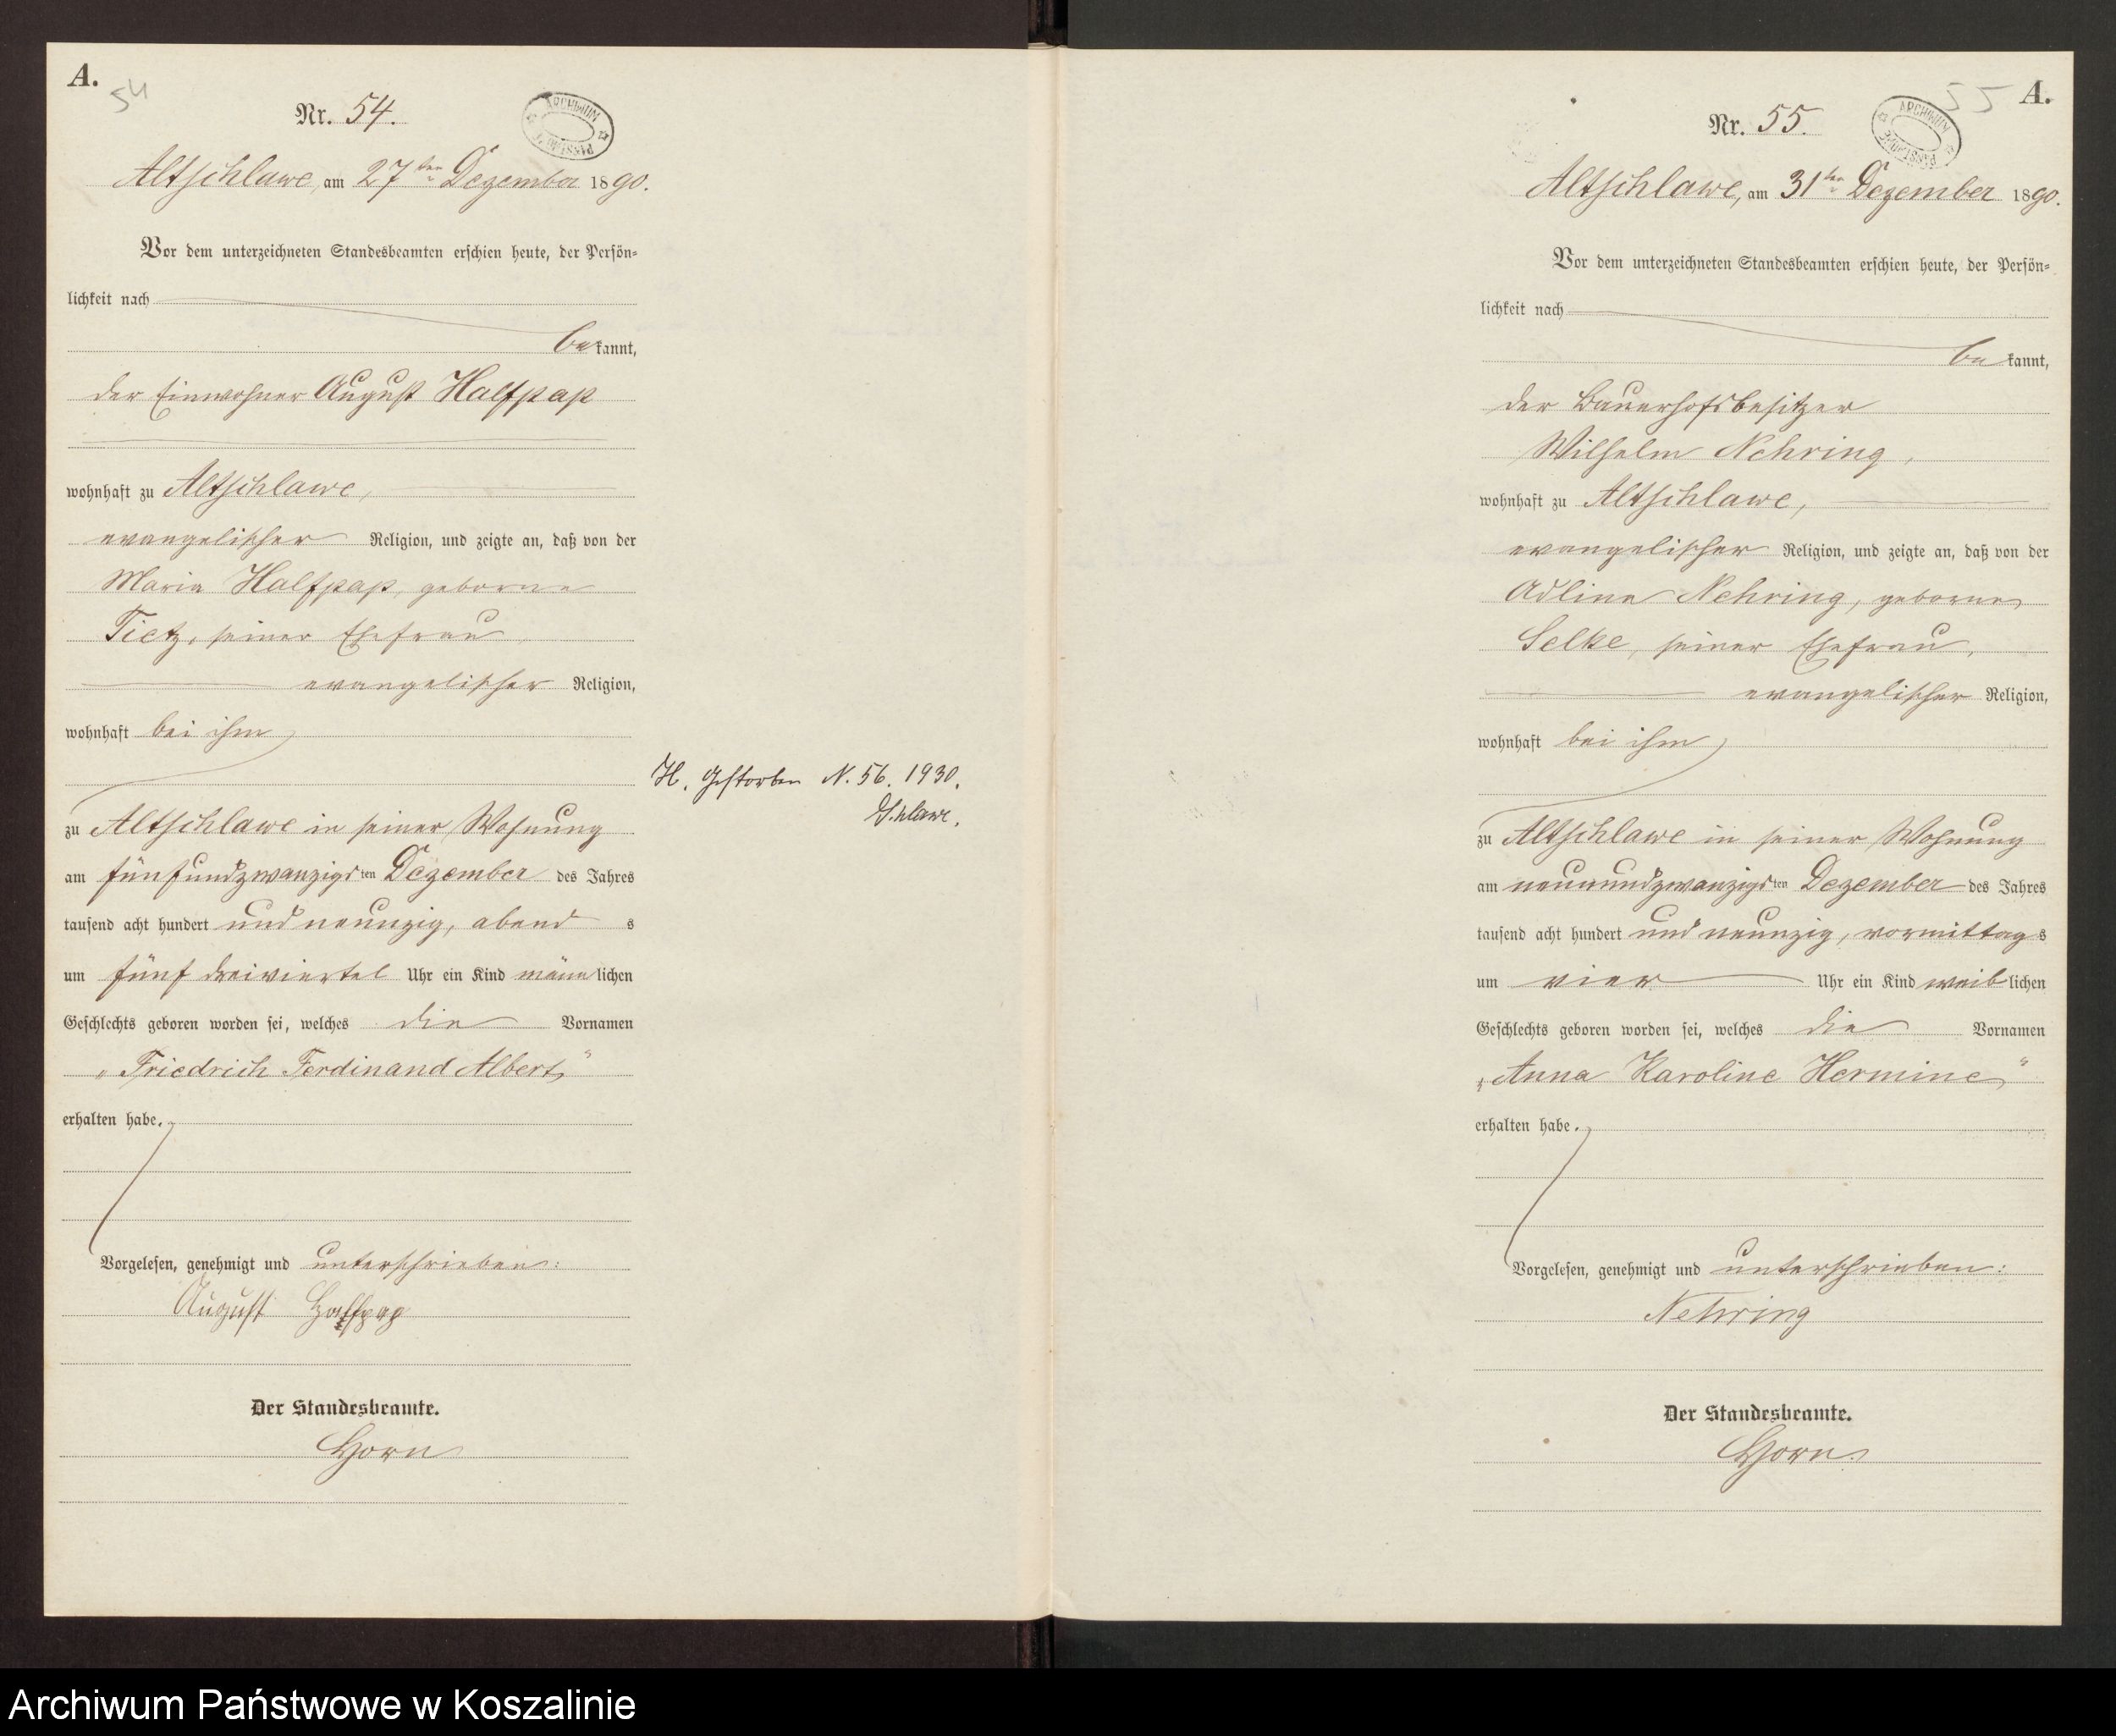 A.
54
Nr. 54.
ARCHIWUM
PAŃSTWOWE
Altschlawe, am 27ten Dezember 1890.
Vor dem unterzeichneten Standesbeamten erschien heute, der Persön-
lichkeit nach
bekannt,
der Einwohner August Halfpap
wohnhaft zu Altschlawe,
evangelischer Religion, und zeigte an, daß von der
Maria Halfpap, geborne
Tietz, seiner Ehefrau,
evangelischer Religion,
wohnhaft bei ihm
zu Altschlawe in seiner Wohnung
am fünfundzwanzigsten Dezember des Jahres
tausend acht hundert und neunzig, abends
um fünf dreiviertel Uhr ein Kind männlichen
Geschlechts geboren worden sei, welches die Vornamen
„Friedrich Ferdinand Albert“
erhalten habe.
Vorgelesen, genehmigt und unterschrieben:
August Halfpap
Der Standesbeamte.
Horn
H. Gestorben N. 56. 1930.
Schlawe.
A.
55
Nr. 55.
ARCHIWUM
PAŃSTWOWE
Altschlawe, am 31ten Dezember 1890.
Vor dem unterzeichneten Standesbeamten erschien heute, der Persön-
lichkeit nach
bekannt,
der Bauerhofsbesitzer
Wilhelm Nehring,
wohnhaft zu Altschlawe,
evangelischer Religion, und zeigte an, daß von der
Adline Nehring, geborne
Selke, seiner Ehefrau,
evangelischer Religion,
wohnhaft bei ihm
zu Altschlawe in seiner Wohnung
am neunundzwanzigsten Dezember des Jahres
tausend acht hundert und neunzig, vormittags
um vier Uhr ein Kind weiblichen
Geschlechts geboren worden sei, welches die Vornamen
„Anna Karoline Hermine“
erhalten habe.
Vorgelesen, genehmigt und unterschrieben:
Nehring
Der Standesbeamte.
Horn.
Archiwum Państwowe w Koszalinie